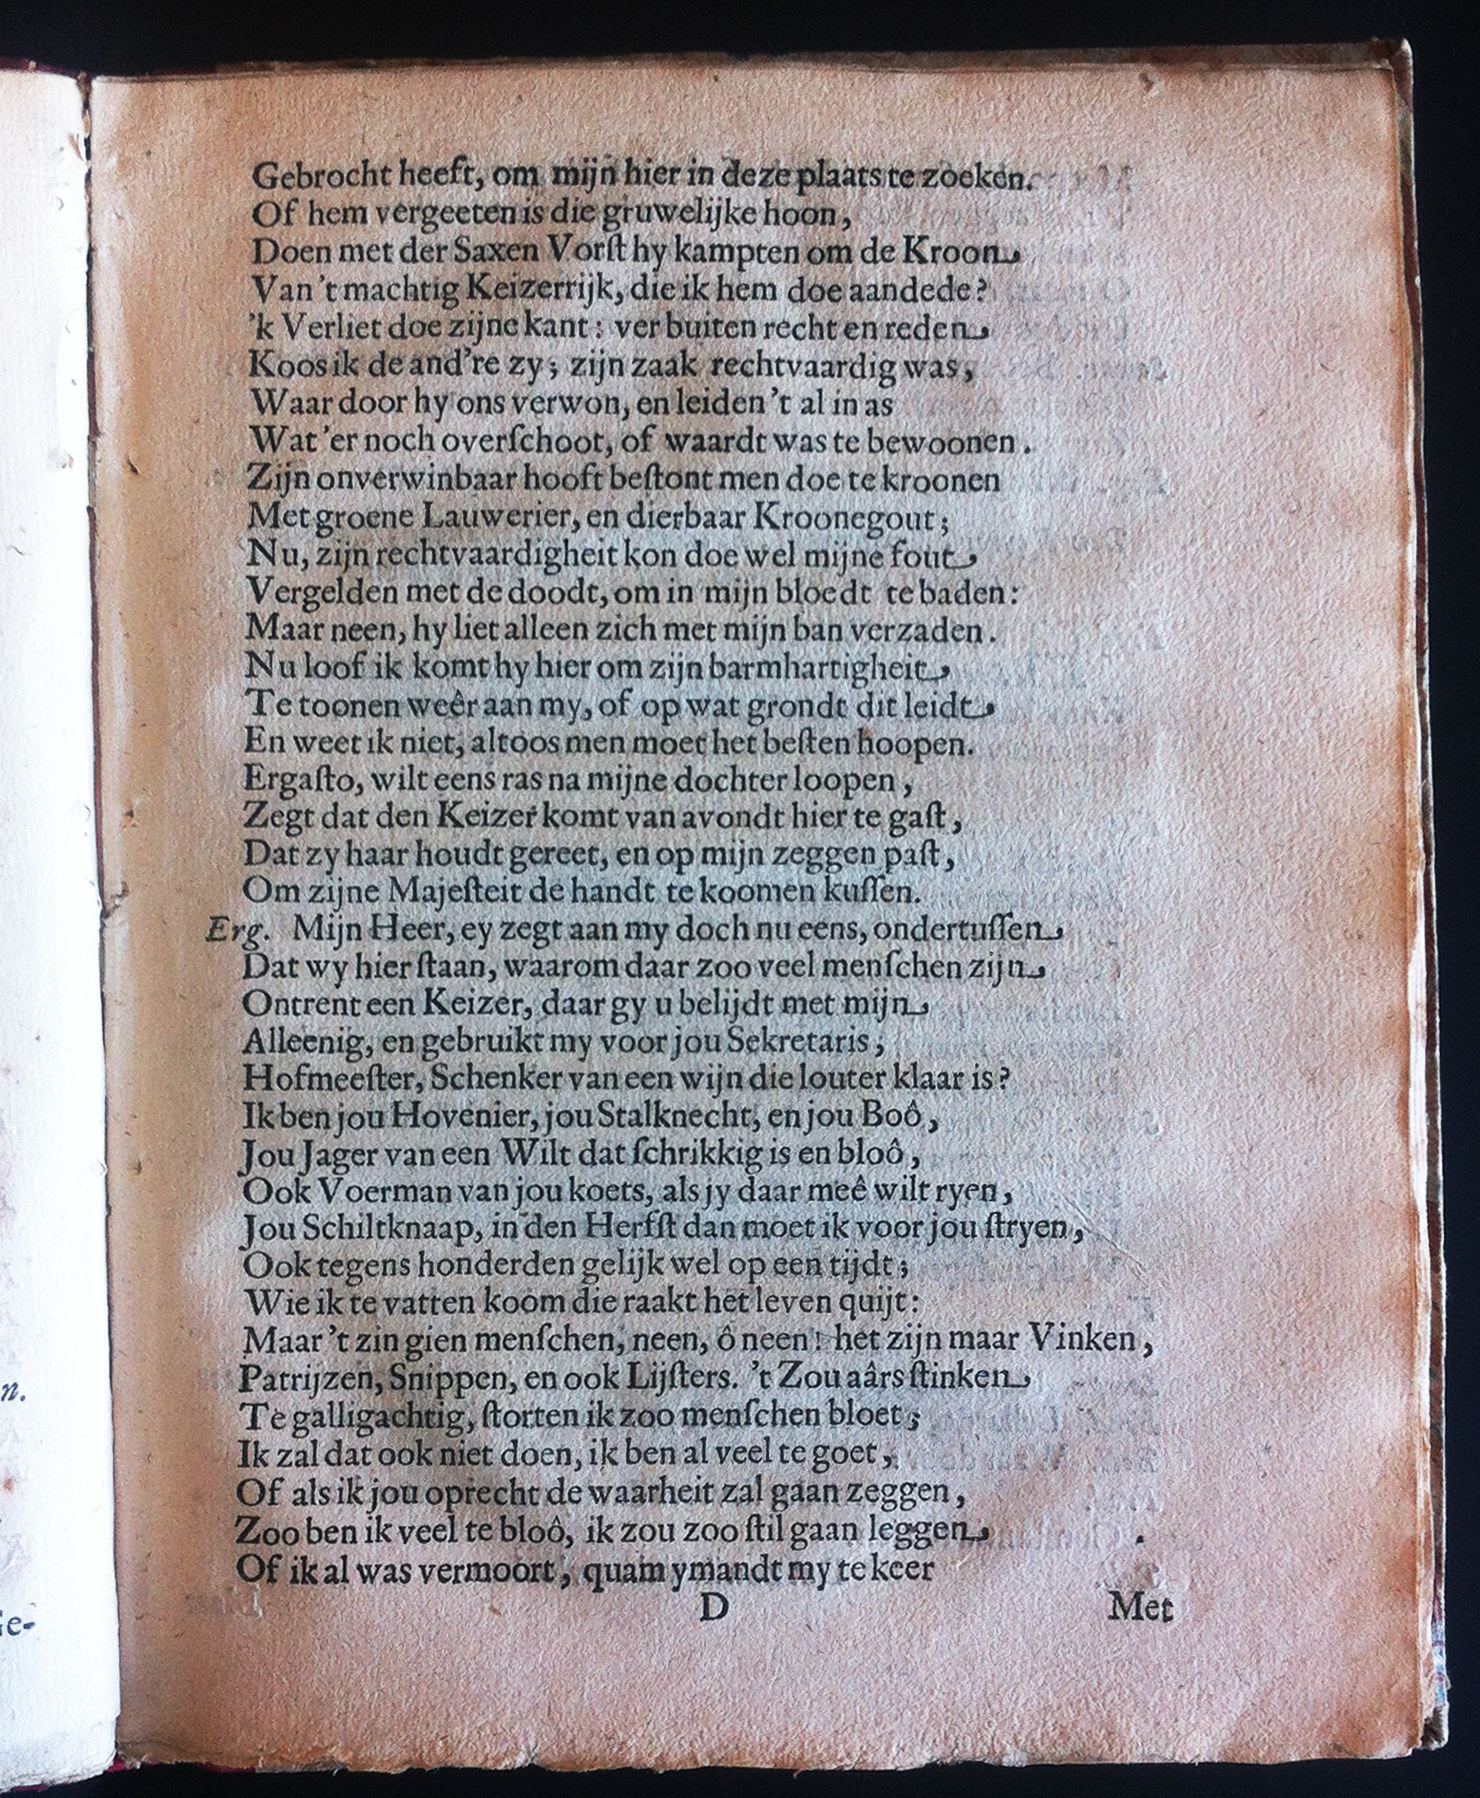 Gebrocht heeft, om mijn hier in deze plaats te zoeken.
Of hem vergeeten is die gruwelijke hoon,
Doen met der Saxen Vorſt hy kampten om de Kroon
Van 't machtig Keizerrijk, die ik hem doe aandede?
'k Verliet doe zijne kant: ver buiten recht en reden
Koos ik de and're zy; zijn zaak rechtvaardig was,
Waar door hy ons verwon, en leiden 't al in as
Wat 'er noch overſchoot, of waardt was te bewoonen.
Zijn onverwinbaar hooft beſtont men doe te kroonen
Met groene Lauwerier, en dierbaar Kroonegout;
Nu, zijn rechtvaardigheit kon doe wel mijne fout
Vergelden met de doodt, om in mijn bloedt te baden:
Maar neen, hy liet alleen zich met mijn ban verzaden.
Nu loof ik komt hy hier om zijn barmhartigheit
Te toonen weêr aan my, of op wat grondt dit leidt
En weet ik niet, altoos men moet het beſten hoopen.
Ergaſto, wilt eens ras na mijne dochter loopen,
Zegt dat den Keizer komt van avondt hier te gaſt,
Dat zy haar houdt gereet, en op mijn zeggen paſt,
Om zijne Majeſteit de handt te koomen kuſſen.
Erg. Mijn Heer, ey zegt aan my doch nu eens, ondertuſſen
Dat wy hier ſtaan, waarom daar zoo veel menſchen zijn
Ontrent een Keizer, daar gy u belijdt met mijn
Alleenig, en gebruikt my voor jou Sekretaris,
Hofmeeſter, Schenker van een wijn die louter klaar is?
Ik ben jou Hovenier, jou Stalknecht, en jou Boô,
Jou Jager van een Wilt dat ſchrikkig is en bloô,
Ook Voerman van jou koets, als jy daar meê wilt ryen,
Jou Schiltknaap, in den Herfſt dan moet ik voor jou ſtryen,
Ook tegens honderden gelijk wel op een tijdt;
Wie ik te vatten koom die raakt het leven quijt:
Maar 't zin gien menſchen, neen, ô neen! het zijn maar Vinken,
Patrijzen, Snippen, en ook Lijſters. 't Zou aârs ſtinken
Te galligachtig, ſtorten ik zoo menſchen bloet;
Ik zal dat ook niet doen, ik ben al veel te goet,
Of als ik jou oprecht de waarheit zal gaan zeggen,
Zoo ben ik veel te bloô, ik zou zoo ſtil gaan leggen
Of ik al was vermoort, quam ymandt my te keer
D Met
n.
Ge-